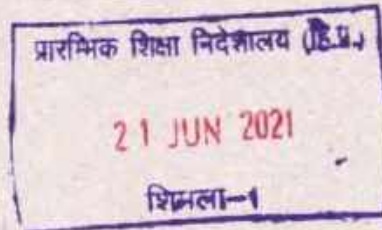 प्रारम्भिक शिक्षा निदेशालय (हि.प्र.)
21 JUN 2021
शिमला-1